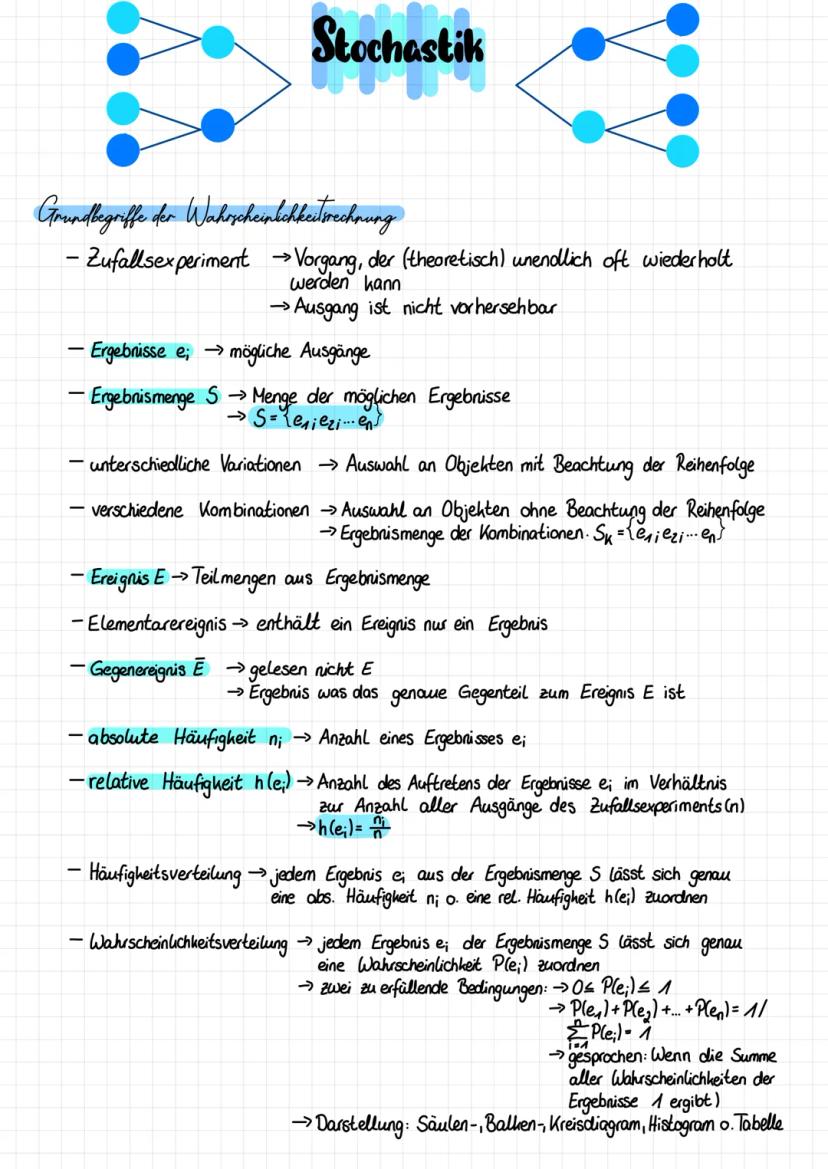 Stochastik
Grundbegriffe der Wahrscheinlichkeitsrechnung
– Zufallsexperiment → Vorgang, der (theoretisch) unendlich oft wiederholt
werden kann
→ Ausgang ist nicht vorhersehbar
– Ergebnisse eᵢ → mögliche Ausgänge
– Ergebnismenge S → Menge der möglichen Ergebnisse
→ S = {e₁; e₂; ... eₙ}
– unterschiedliche Variationen → Auswahl an Objekten mit Beachtung der Reihenfolge
– verschiedene Kombinationen → Auswahl an Objekten ohne Beachtung der Reihenfolge
→ Ergebnismenge der Kombinationen. Sₖ = {e₁; e₂; ... eₙ}
– Ereignis E → Teilmengen aus Ergebnismenge
– Elementarereignis → enthält ein Ereignis nur ein Ergebnis
– Gegenereignis Ē → gelesen nicht E
→ Ergebnis was das genaue Gegenteil zum Ereignis E ist
– absolute Häufigkeit nᵢ → Anzahl eines Ergebnisses eᵢ
– relative Häufigkeit h(eᵢ) → Anzahl des Auftretens der Ergebnisse eᵢ im Verhältnis
zur Anzahl aller Ausgänge des Zufallsexperiments (n)
→ h(eᵢ) = nᵢ/n
– Häufigkeitsverteilung → jedem Ergebnis eᵢ aus der Ergebnismenge S lässt sich genau
eine abs. Häufigkeit nᵢ o. eine rel. Häufigkeit h(eᵢ) zuordnen
– Wahrscheinlichkeitsverteilung → jedem Ergebnis eᵢ der Ergebnismenge S lässt sich genau
eine Wahrscheinlichkeit P(eᵢ) zuordnen
→ zwei zu erfüllende Bedingungen: → 0 ≤ P(eᵢ) ≤ 1
→ P(e₁) + P(e₂) + ... + P(eₙ) = 1 /
n ∑ i=1 P(eᵢ) = 1
→ gesprochen: Wenn die Summe
aller Wahrscheinlichkeiten der
Ergebnisse 1 ergibt)
→ Darstellung: Säulen-, Balken-, Kreisdiagram, Histogram o. Tabelle